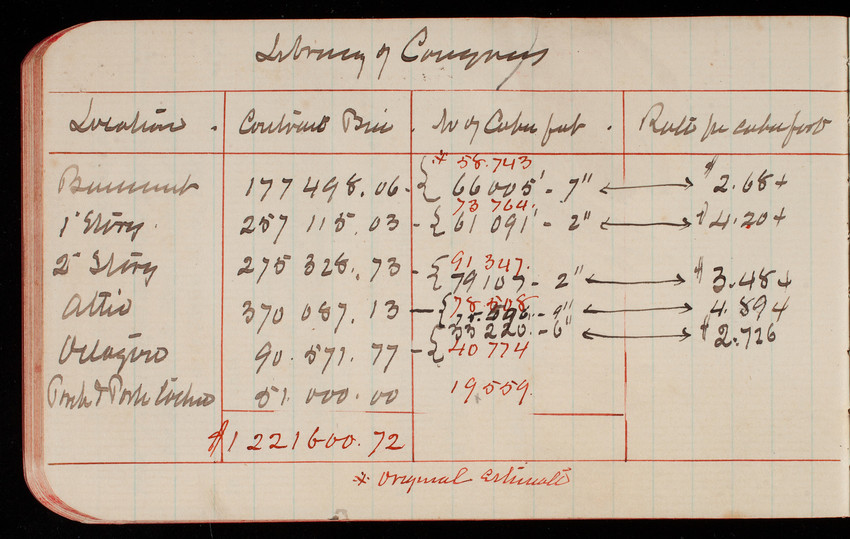 Library of Congress
Location . Contract Price . No of Cube feet . Rate per cube foot
* 58.743
Basement 177 498.06 - { 66 005' - 7" $2.68+
73 764.
1st Story. 257 115.03 - { 61 091' - 2" $4.20+
91 347.
2d Story 275 328.73 - { 79 107 - 2" $3.48+
78 508
Attic 370 087.13 - { - 9" 4.89+
33 220. - 6" $2.726
Octagon 90.571.77 - { 40 774
Porch & Porte Cochere 51.000.00 19559.
$1 221600.72
* Original estimate